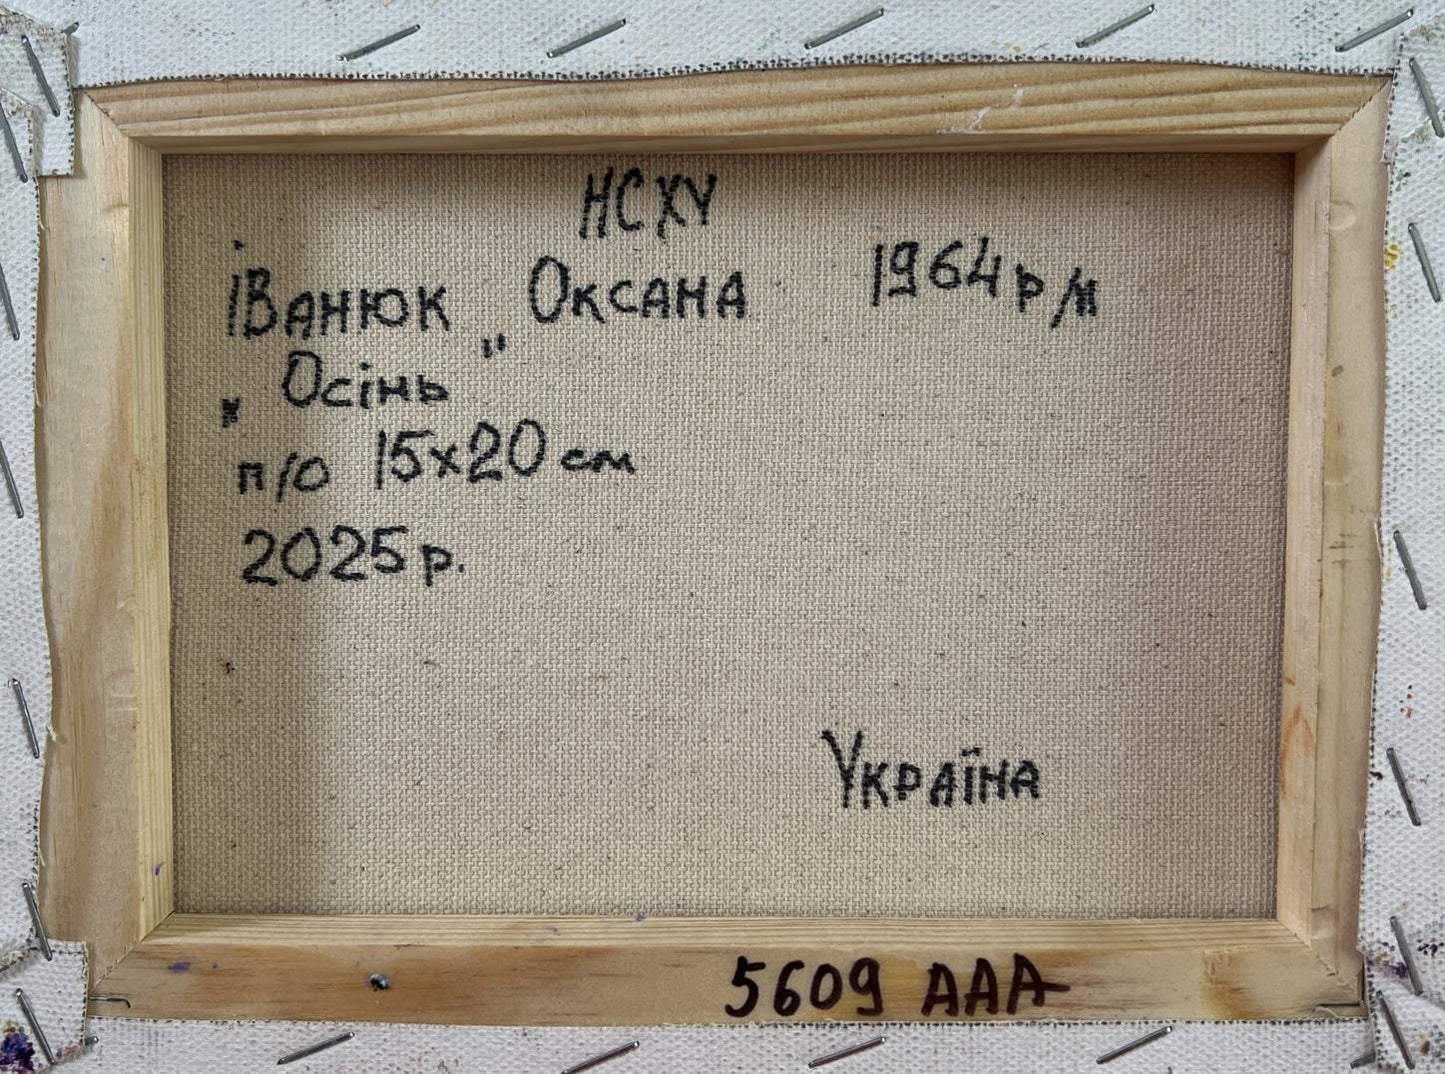 НСХУ
ІВАНЮК ОКСАНА 1964 р/н
„Осінь"
п/о 15х20 см
2025 р.
Україна
5609 ААА